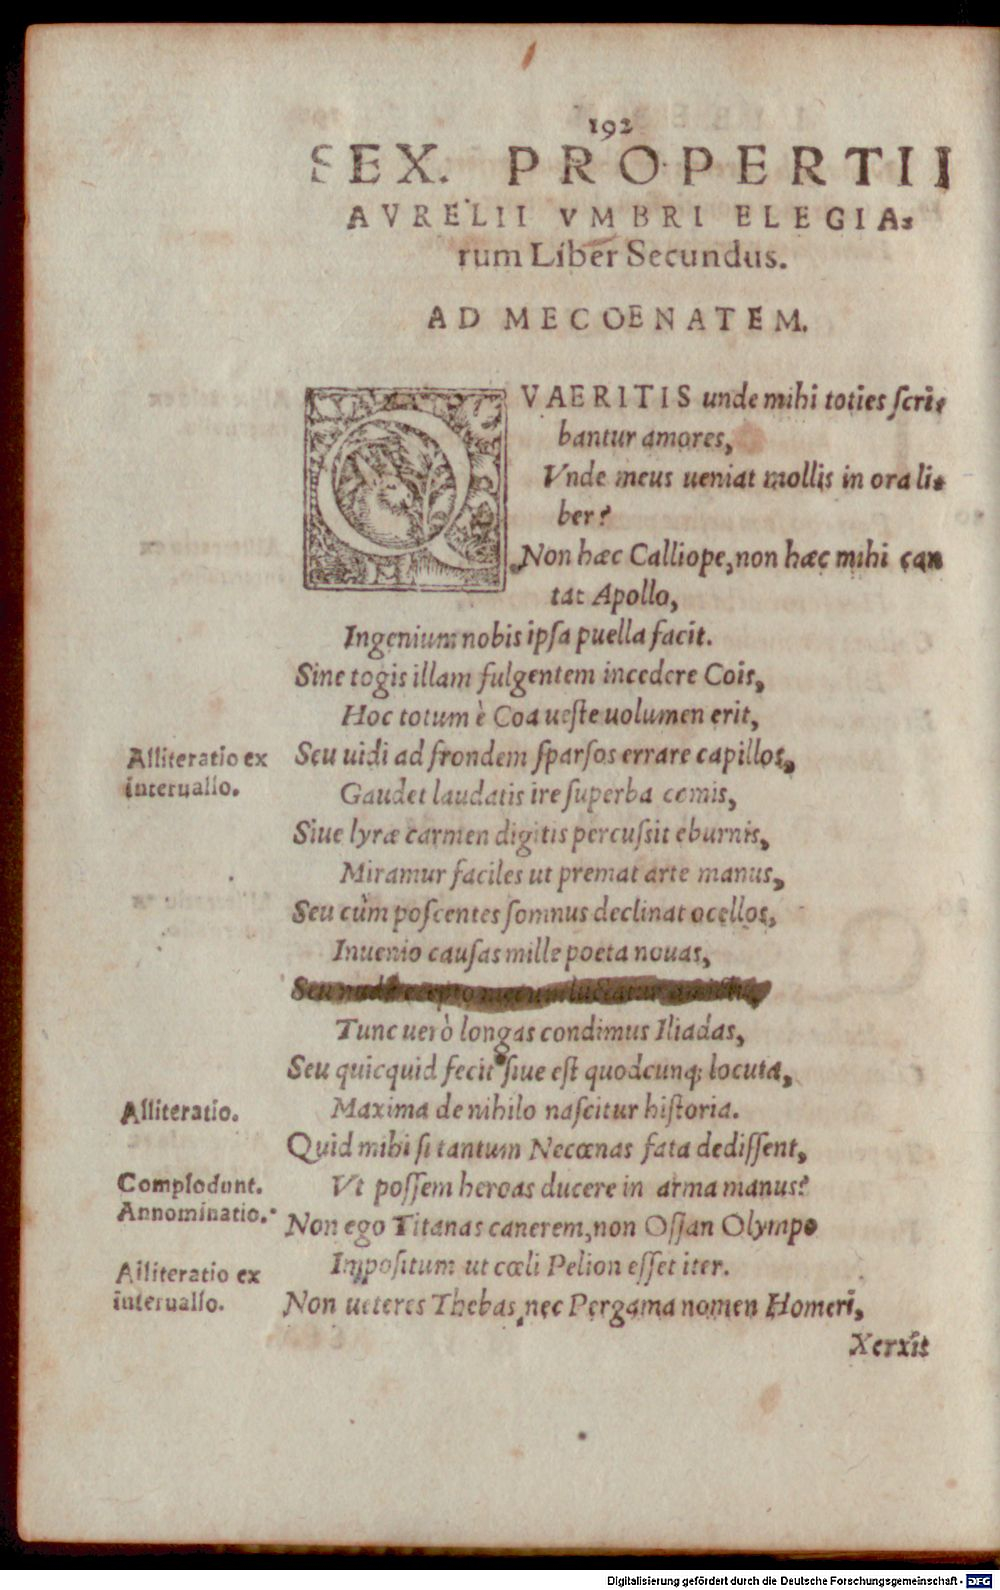 192
SEX. PROPERTII
AVRELII VMBRI ELEGIA⸗
rum Liber Secundus.
AD MECOENATEM.
QVAERITIS unde mihi toties ſcri⸗
bantur amores,
Vnde meus ueniat mollis in ora li⸗
ber?
Non hæc Calliope, non hæc mihi can
tat Apollo,
Ingenium nobis ipſa puella facit.
Siue togis illam fulgentem incedere Cois,
Hoc totum è Coa ueſte uolumen erit,
Alliteratio ex
interuallo.
Seu uidi ad frondem ſparſos errare capillos,
Gaudet laudatis ire ſuperba comis,
Siue lyræ carmen digitis percuſsit eburnis,
Miramur faciles ut premat arte manus,
Seu cùm poſcentes ſomnus declinat ocellos,
Inuenio cauſas mille poeta nouas,
Seu
Tunc uerò longas condimus Iliadas,
Seu quicquid fecit ſiue eſt quodcunq; locuta,
Alliteratio.
Maxima de nihilo naſcitur hiſtoria.
Quid mihi ſi tantum Necœnas fata dediſſent,
Complodunt.
Vt poſſem heroas ducere in arma manus?
Annominatio.
Non ego Titanas canerem, non Oſſan Olympo
Impoſitum ut cœli Pelion eſſet iter.
Alliteratio ex
interuallo.
Non ueteres Thebas, nec Pergama nomen Homeri,
Xerxit
Digitalisierung gefördert durch die Deutsche Forschungsgemeinschaft - DFG